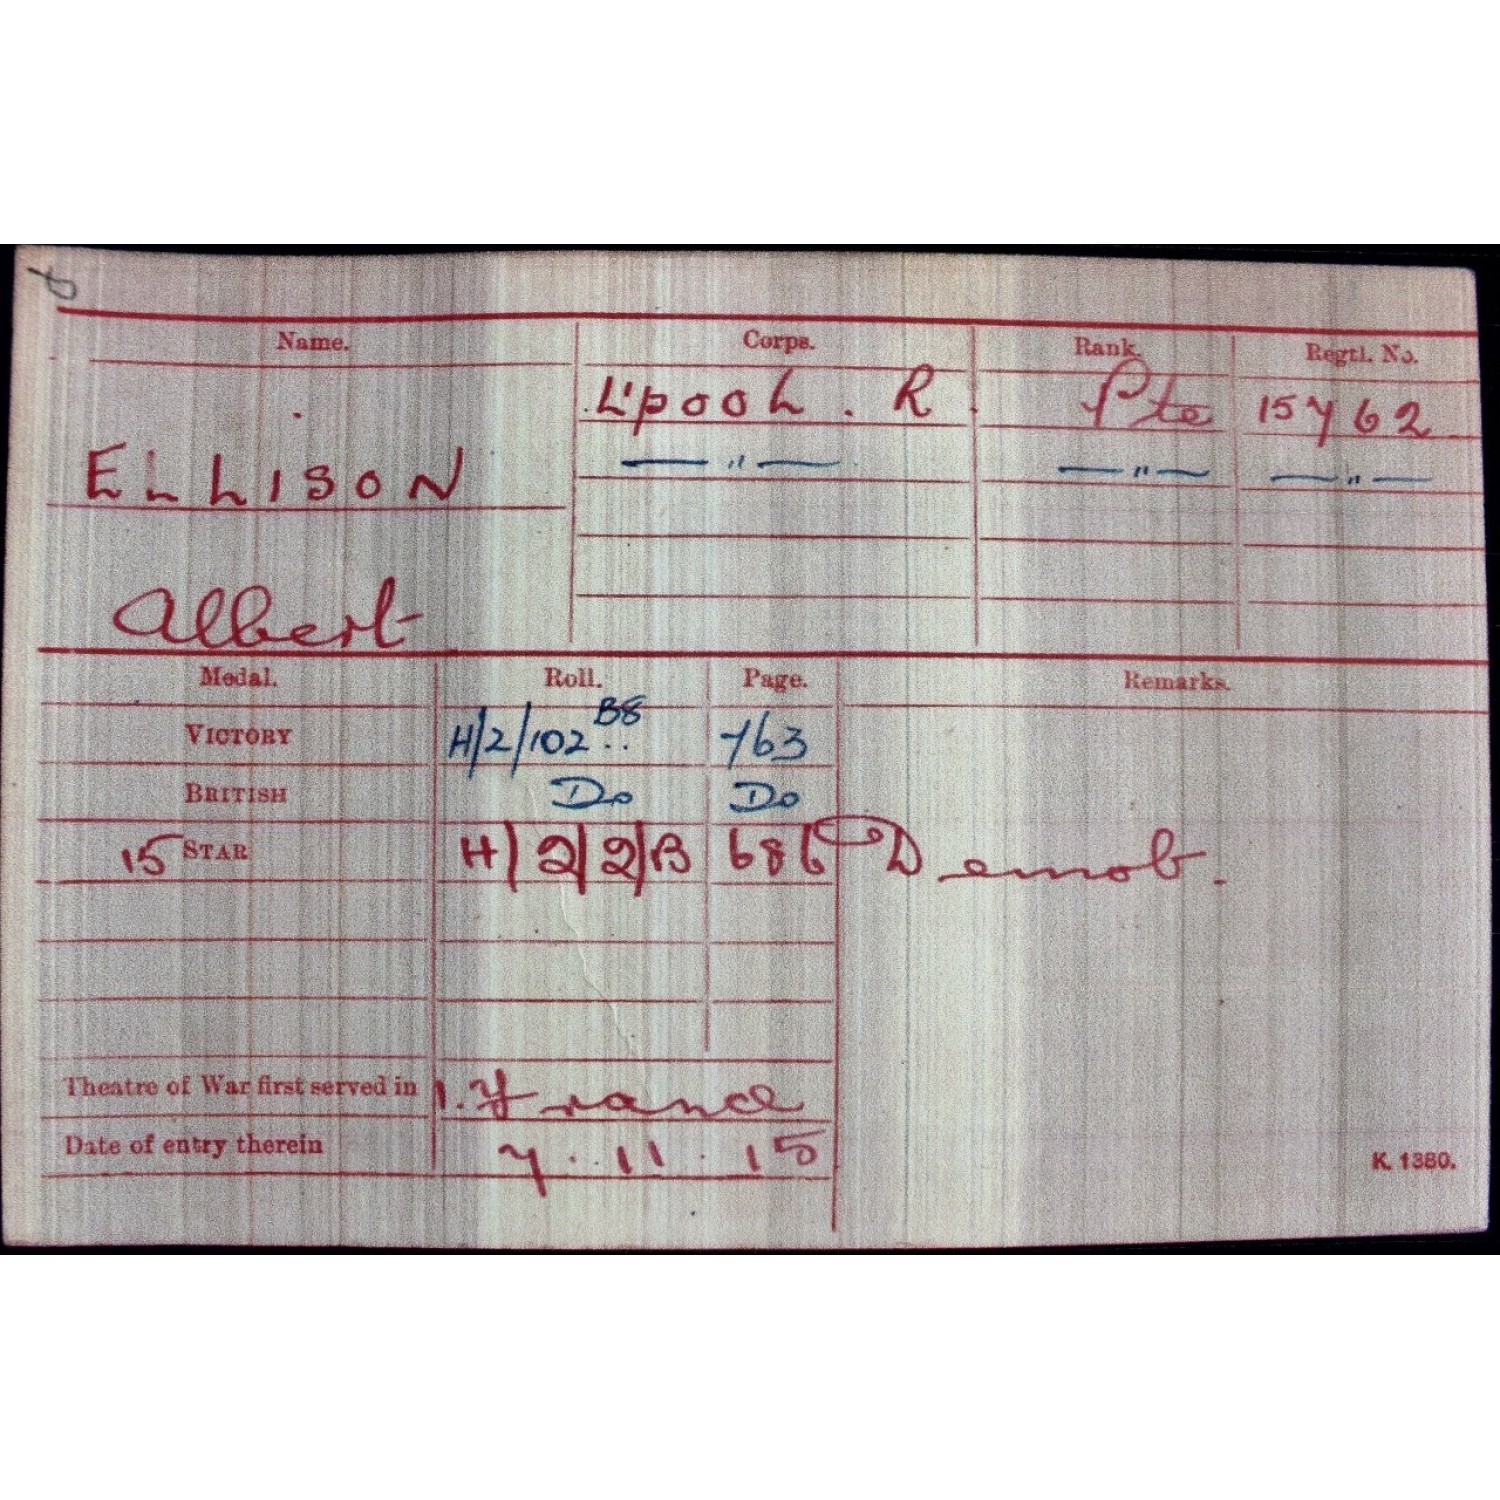 Name. Corps. Rank. Regtl. No.
L'pool . R . Pte 15762
ELLISON — " — — " — — " —
Albert
Medal. Roll. Page. Remarks.
VICTORY H/2/102 B8 .. 763
BRITISH Do Do
15 STAR H/2/2/B 686 Demob.
Theatre of War first served in 1. France
Date of entry therein 7.11.15
K. 1380.